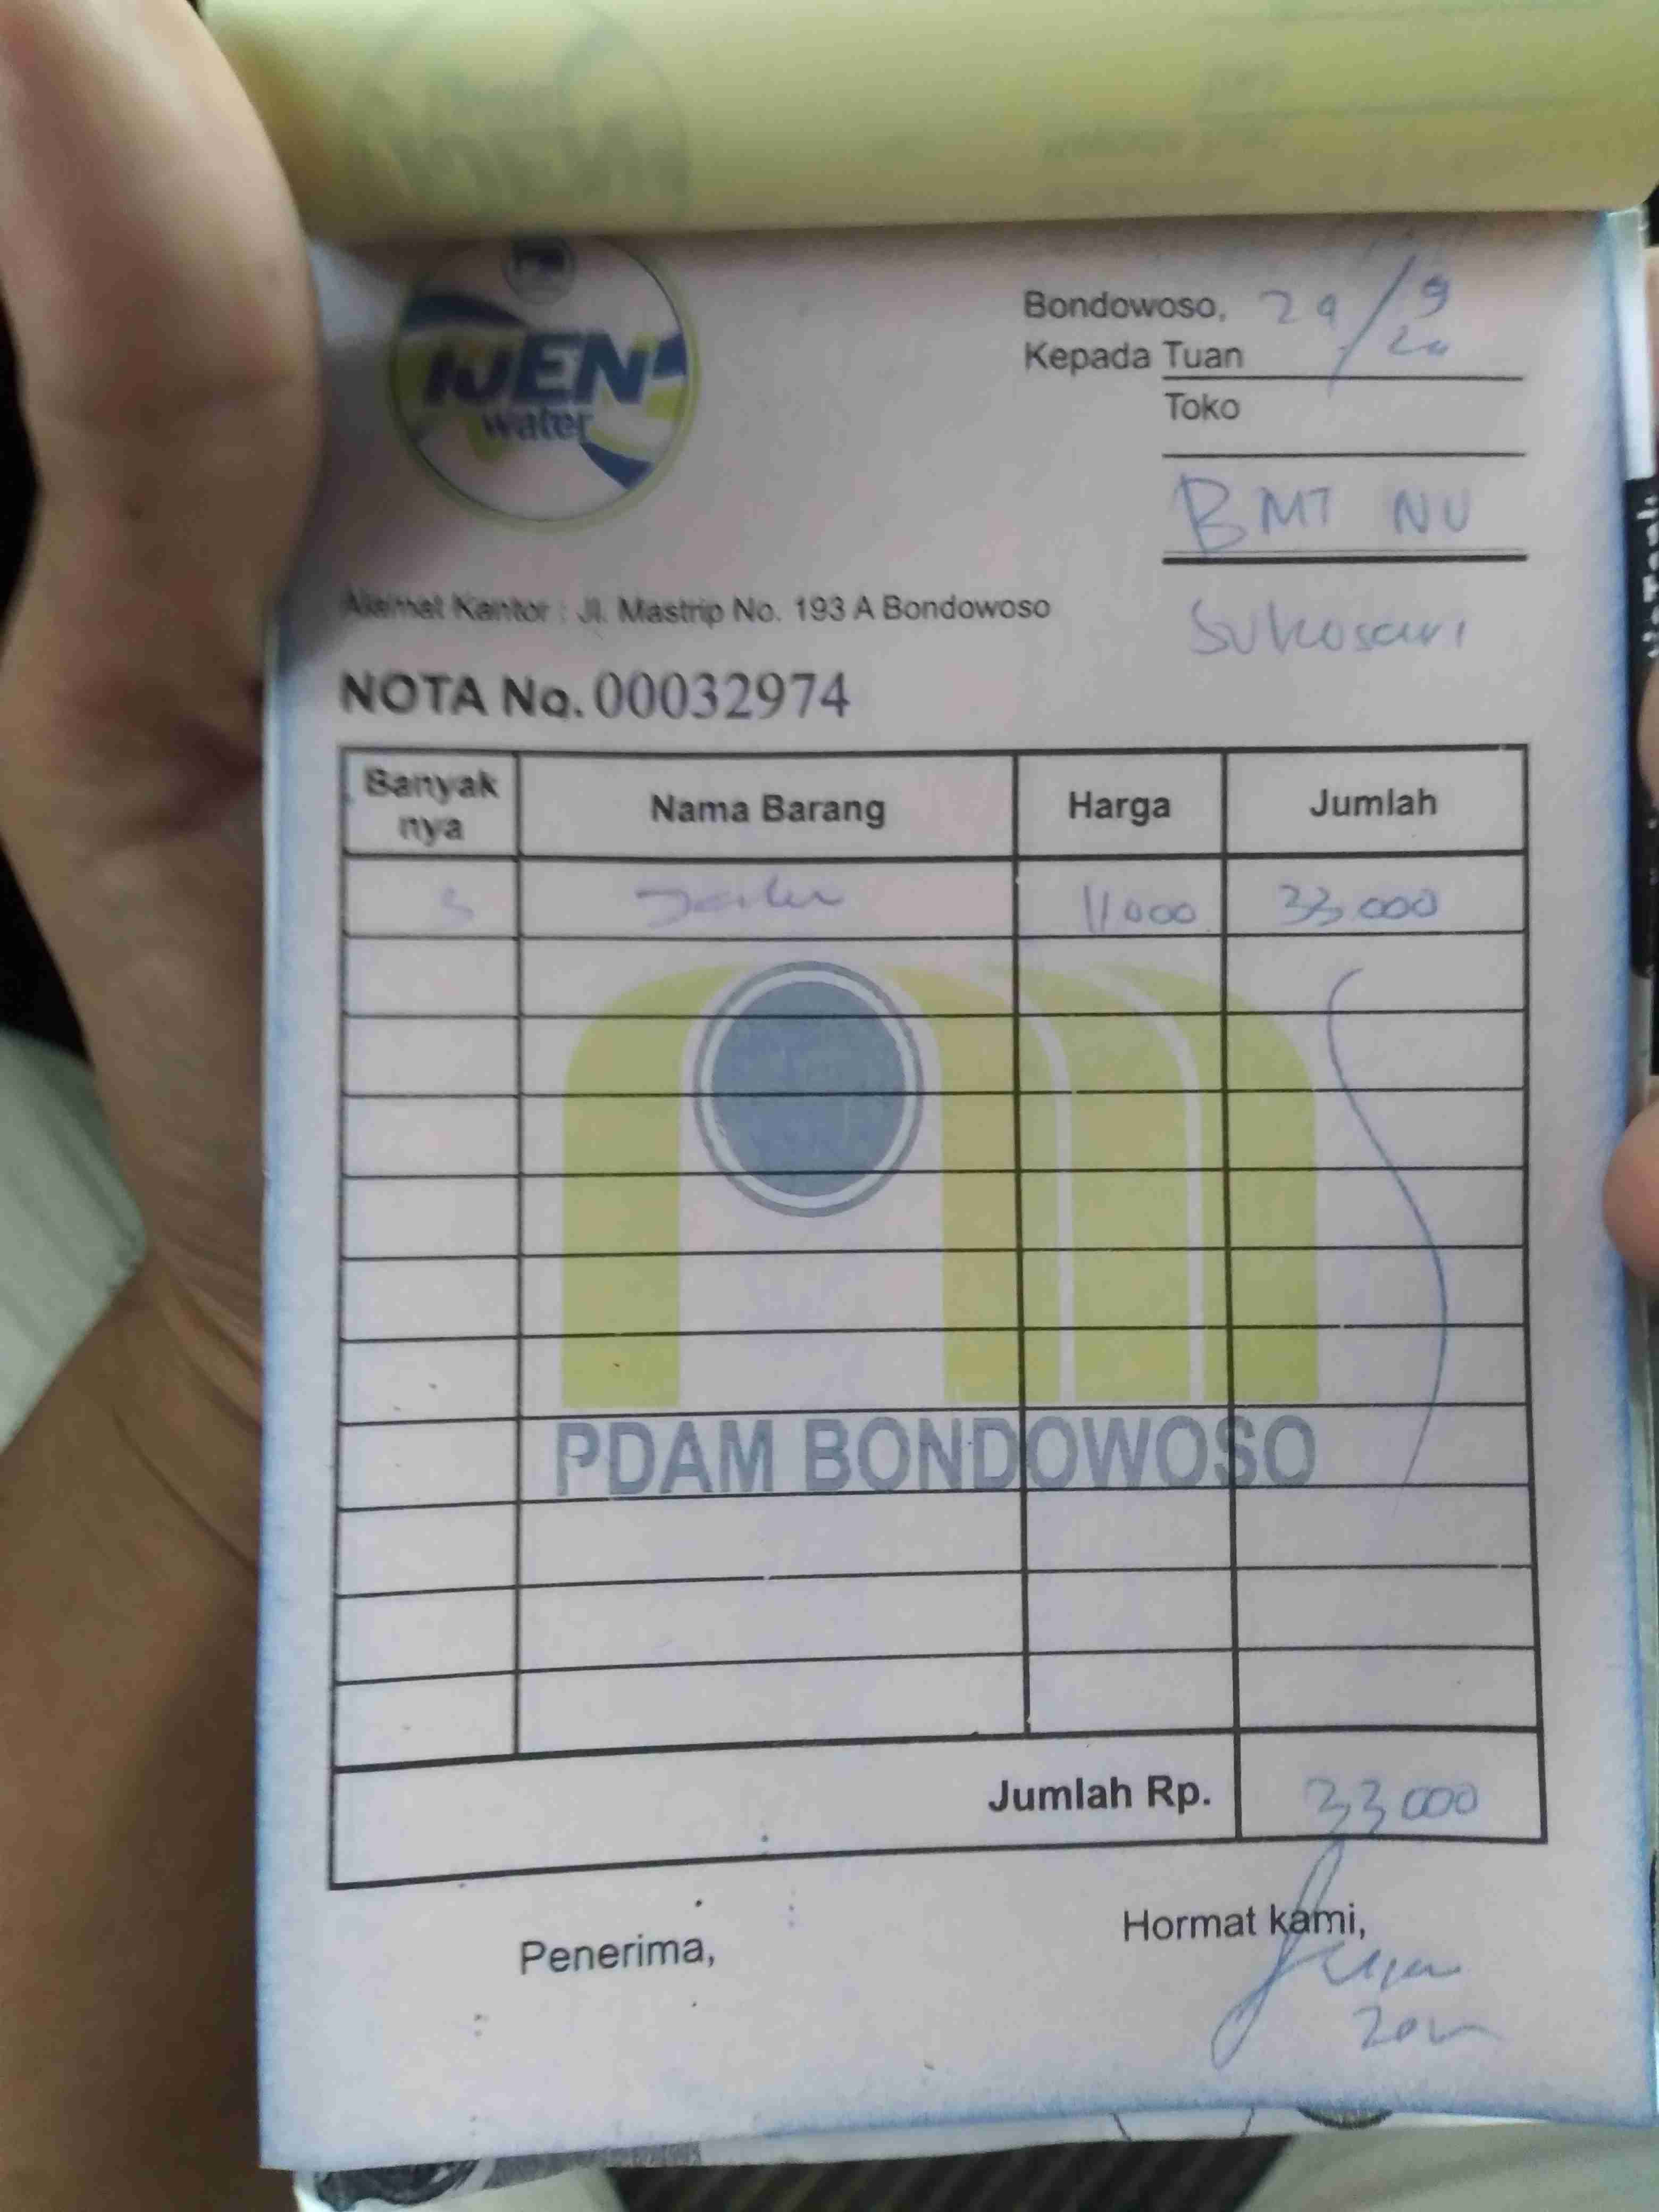 IJEN
water
Bondowoso, 29/9
Kepada Tuan
Toko
BMT NU
Sukosari
Alamat Kantor : Jl. Mastrip No. 193 A Bondowoso
NOTA No. 00032974
Banyak nya Nama Barang Harga Jumlah
3 11000 33.000
PDAM BONDOWOSO
Jumlah Rp. 33 000
Penerima, Hormat kami,